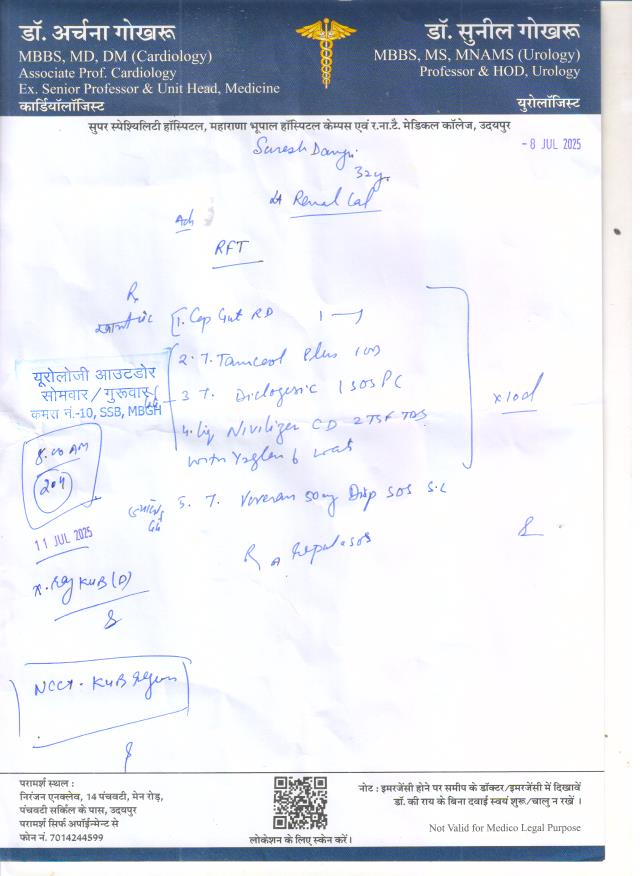 डॉ. अर्चना गोखरू
MBBS, MD, DM (Cardiology)
Associate Prof. Cardiology
Ex. Senior Professor & Unit Head, Medicine
कार्डियॉलॉजिस्ट
डॉ. सुनील गोखरू
MBBS, MS, MNAMS (Urology)
Professor & HOD, Urology
यूरोलॉजिस्ट
सुपर स्पेश्यिलिटी हॉस्पिटल, महाराणा भूपाल हॉस्पिटल केम्पस एवं र.ना.टै. मेडिकल कॉलेज, उदयपुर
Suresh Dangi
- 8 JUL 2025
32y
Renal Cal
Adv
RFT
Rx
1. Cap Gut RD
2. T.
Plus 1 OD
3 T.
1 SOS PC
4. Liq
CD 2TSF TDS
with
x10d
5. T. Voveran 50mg Disp SOS S.L
यूरोलॉजी आउटडोर
सोमवार / गुरूवार
कमरा नं.-10, SSB, MBGH
8.00 AM
204
11 JUL 2025
X-Ray KUB (D)
NCCT - KUB Region
परामर्श स्थल :
निरंजन एनक्लेव, 14 पंचवटी, मेन रोड़,
पंचवटी सर्किल के पास, उदयपुर
परामर्श सिर्फ अपॉईन्मेन्ट से
फोन नं. 7014244599
लोकेशन के लिए स्केन करें।
नोट : इमरजेंसी होने पर समीप के डॉक्टर/इमरजेंसी में दिखावें
डॉ. की राय के बिना दवाई स्वयं शुरू/चालु न रखें ।
Not Valid for Medico Legal Purpose